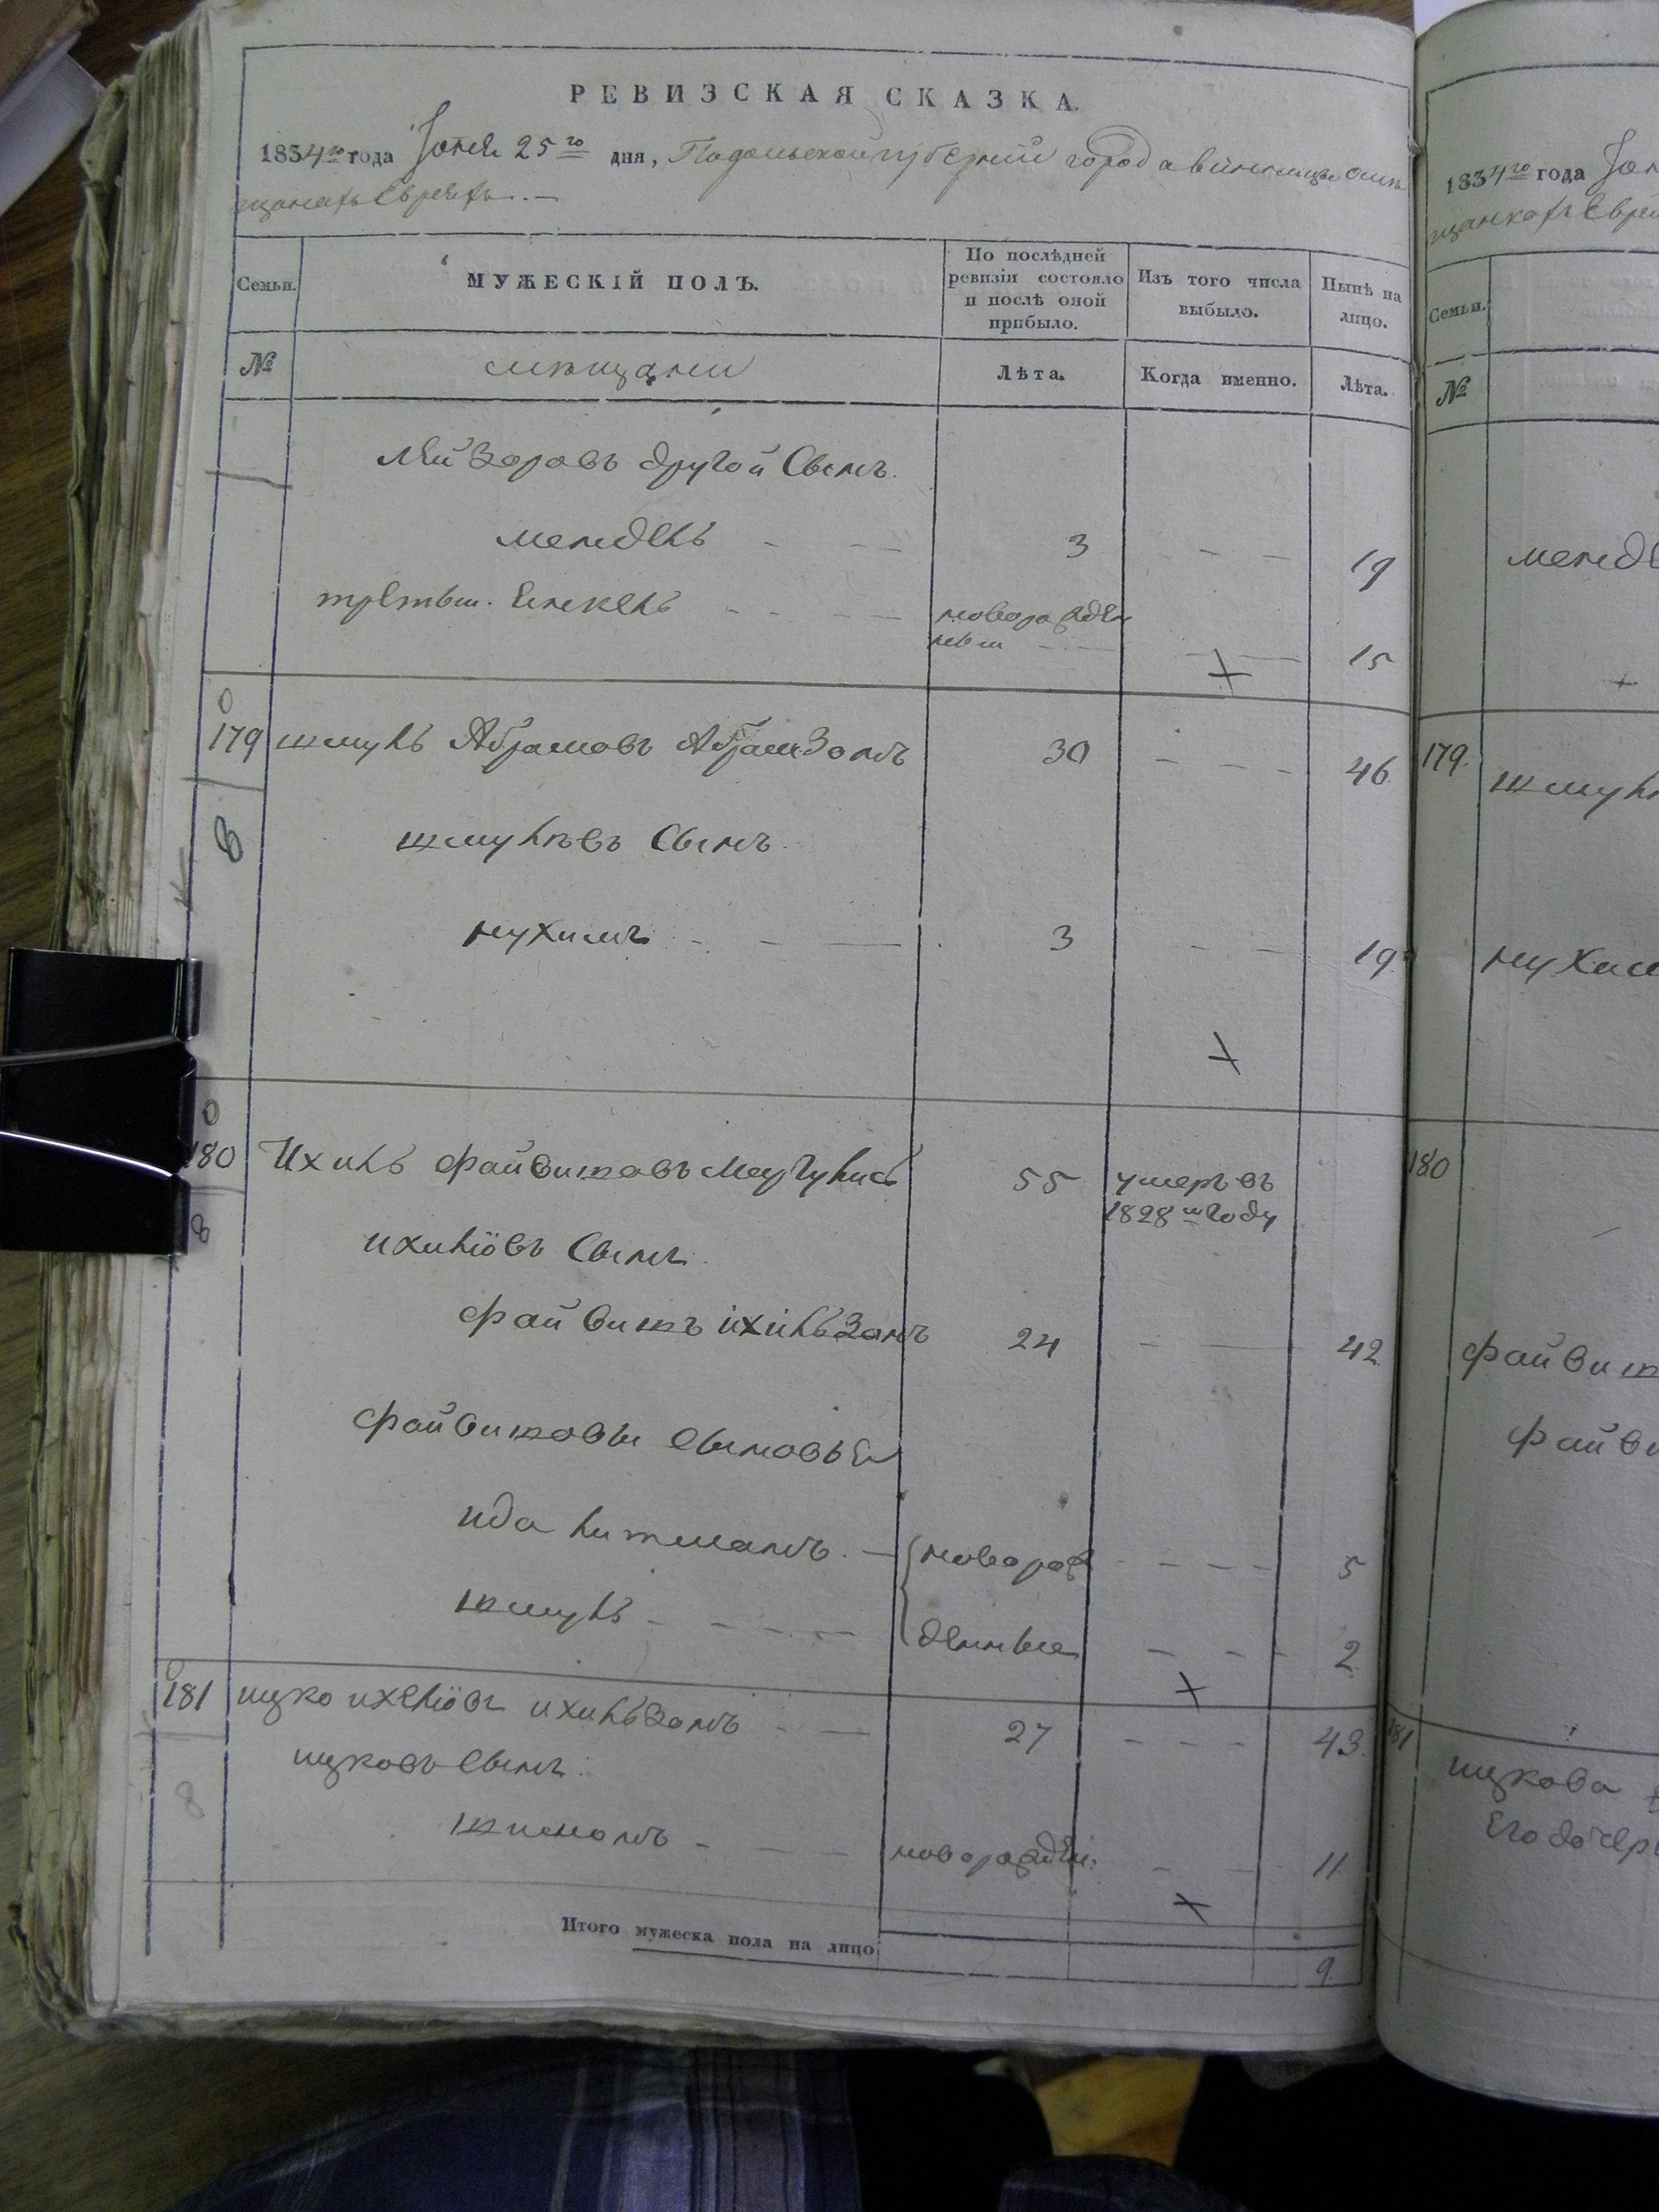 РЕВИЗСКАЯ СКАЗКА.
1834го года Іюня 25го дня, Подольской губерніи города винницы о мѣ
щанахъ Евреяхъ. —
Семьи. МУЖЕСКІЙ ПОЛЪ. По послѣдней ревизіи состояло и послѣ оной прибыло. Изъ того числа выбыло. Нынѣ на лицо.
№ мѣщане Лѣта. Когда именно. Лѣта.
лейзоровъ другой Сынъ.
мендель - — — 3 - — — 19
третьи. Енкель - - - — новорожден
ный - — — — 15
179 шмуль Абрамовъ Абрамзонъ 30 — - - 46
шмулѣвъ Сынъ.
нухимъ - - — 3 - — 19
180 Ихиль файвишовъ 55 умеръ въ
1828м году
ихиліовъ Сынъ.
файвишъ ихильзонъ 24 - — 42
файвишовы сыновья
ида литманъ. — новорож - - - - 5
шмуль - - - - — денные — - - 2
181 ицко ихеліовъ ихильзонъ - — 27 - - - - 43
ицковъ Сынъ.
шимонъ - - - новорожден: - — 11
Итого мужеска пола на лицо 9
1834го года Іюн
щанкахъ Еврей
Семьи.
№
менде
179. шмул
нухим
180
файвиш
файви
181
ицкова
Его дочер